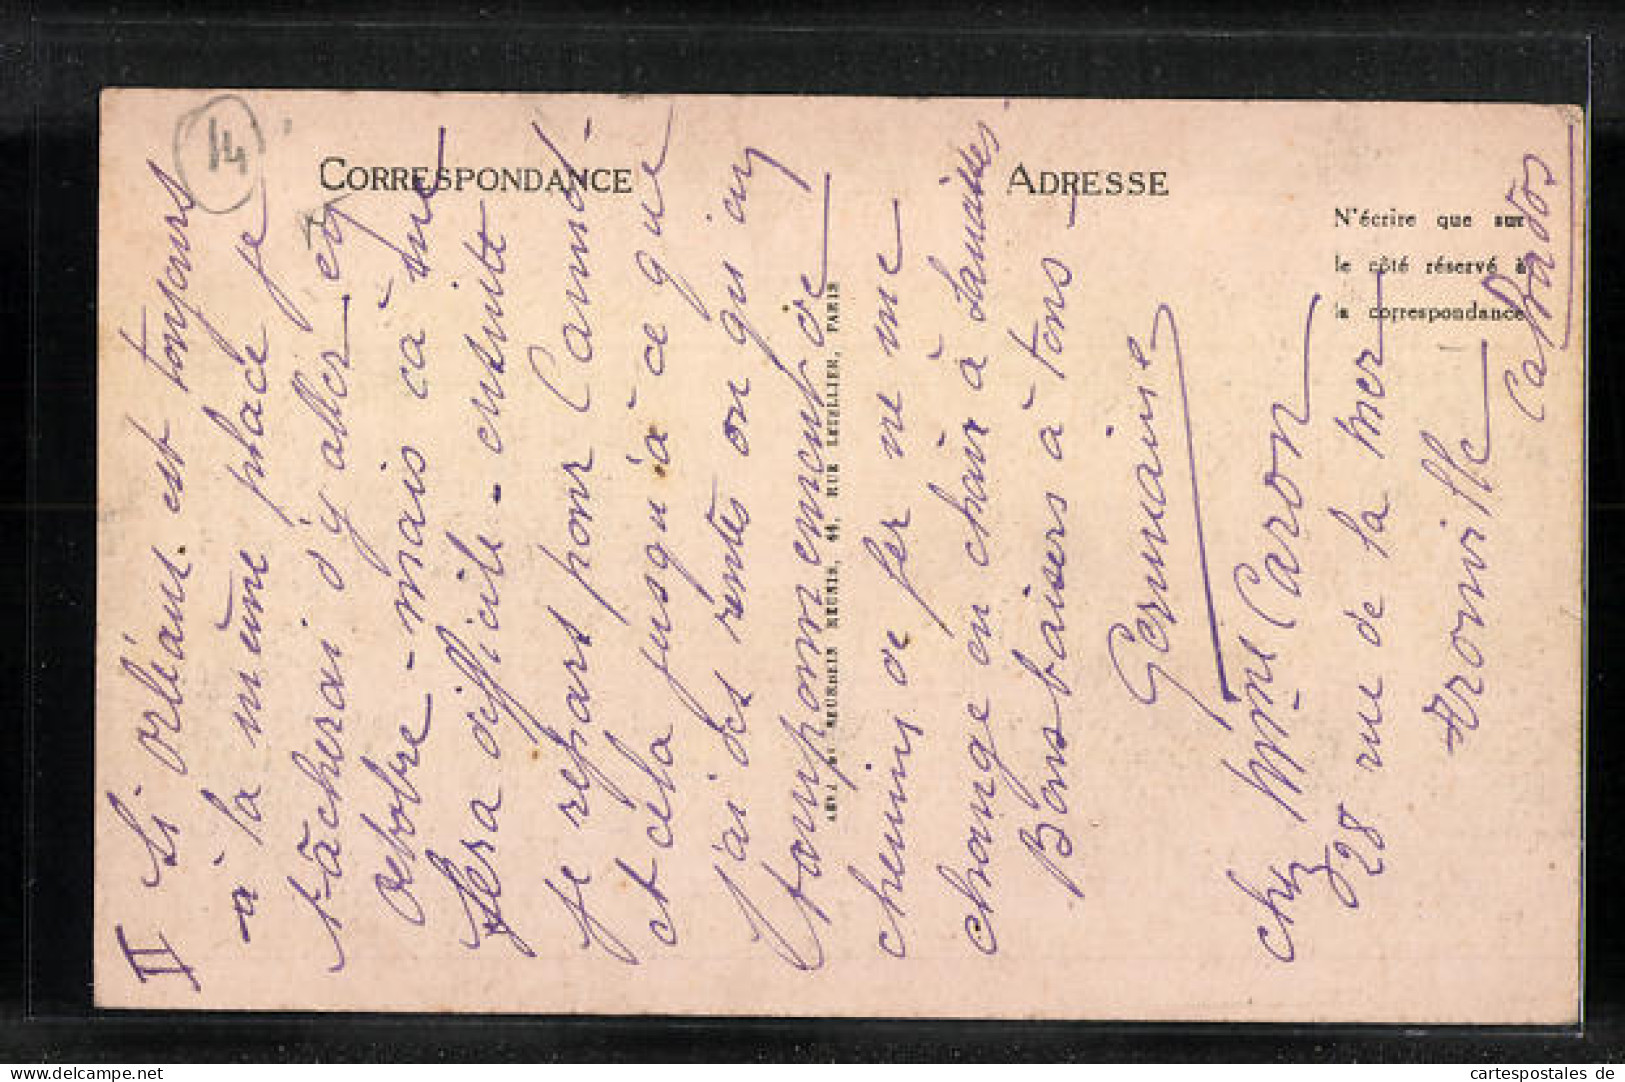 14
CORRESPONDANCE
ADRESSE
N'écrire que sur
le côté réservé à
la correspondance
II Si Orléans est toujours
à la même place je
tâcherai d'y aller en
octobre - mais ça me
sera difficile - ensuite
je repars pour
et cela jusqu'à ce que
j'ai des rentes ou qu'un
tamponnement de
chemins de fer ne me
change en chair à
Bons baisers à tous -
Germaine
chez Mme Caron
28 rue de la Mer
Trouville
Calvados
RÉUNIS, 44, RUE LETELLIER, PARIS
cartespostales de